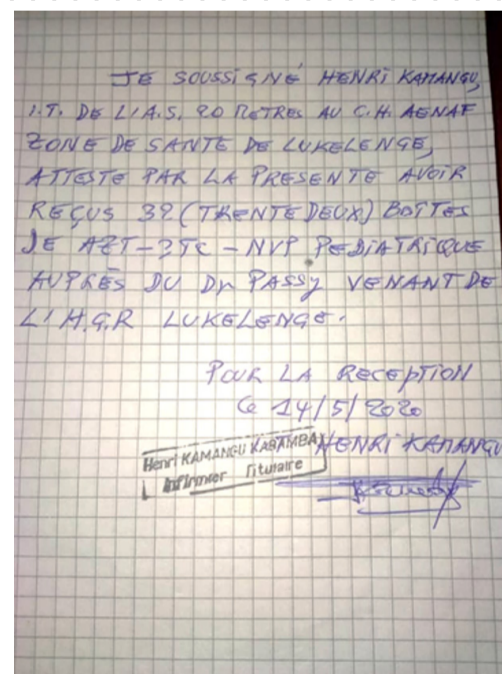 JE SOUSSIGNÉ HENRI KAMANGU,
I.T. DE L'A.S. 20 METRES AU C.H. AENAF
ZONE DE SANTE DE LUKELENGE,
ATTESTE PAR LA PRESENTE AVOIR
REÇUS 32 (TRENTE DEUX) BOITES
DE AZT-3TC-NVP PEDIATRIQUE
AUPRÈS DU Dr PASSY VENANT DE
L'H.G.R LUKELENGE.
POUR LA RECEPTION
Le 14/5/2020
HENRI KAMANGU
Henri KAMANGU KABAMBA
Infirmier Titulaire